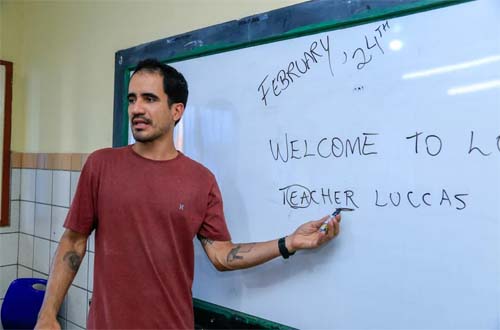 FEBRUARY, 24TH
WELCOME TO
TEACHER LUCCAS